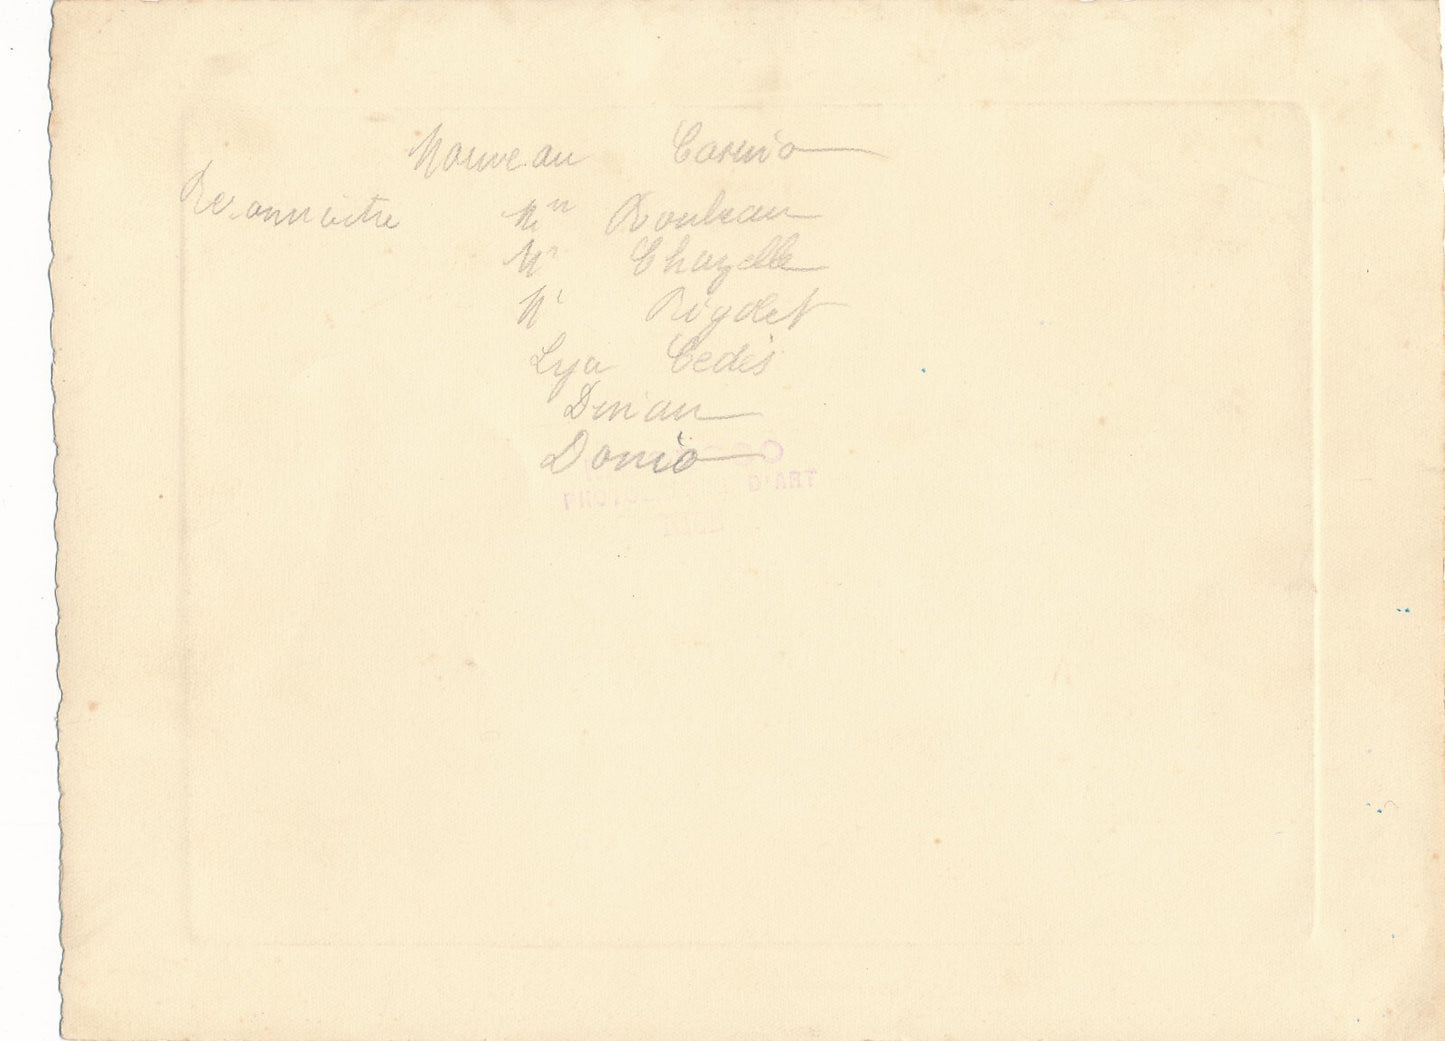 Nouveau Casino
Reconnaitre Mr Rouleau
Mr Chazelle
Mr Rigolet
Lya Cedès
Dinan
Donio